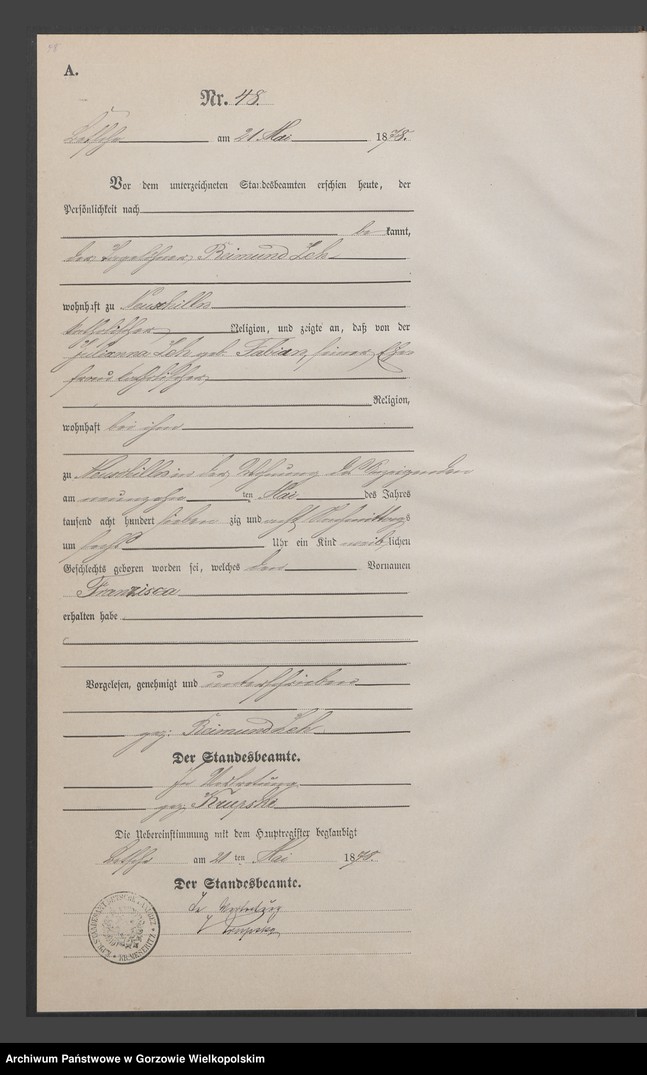 48
A.
Nr. 48.
Betsche am 21 Mai 1878.
Vor dem unterzeichneten Standesbeamten erschien heute, der
Persönlichkeit nach
be kannt,
der Raimund Loh
wohnhaft zu Neuschilln
katholischer Religion, und zeigte an, daß von der
Julianna Loh geb. Fabian, seiner Ehe
frau katholischer
Religion,
wohnhaft bei ihm
zu Neuschilln in der Wohnung des Anzeigenden
am neunzehn ten Mai des Jahres
tausend acht hundert sieben zig und acht Nachmittags
um sechs Uhr ein Kind weiblichen
Geschlechts geboren worden sei, welches den Vornamen
Franzisca
erhalten habe
Vorgelesen, genehmigt und unterschrieben
gez: Raimund Loh.
Der Standesbeamte.
In Vertretung
gez. Krupski
Die Uebereinstimmung mit dem Hauptregister beglaubigt
Betsche am 21 ten Mai 1878.
Der Standesbeamte.
In Vertretung
Krupski
Archiwum Państwowe w Gorzowie Wielkopolskim